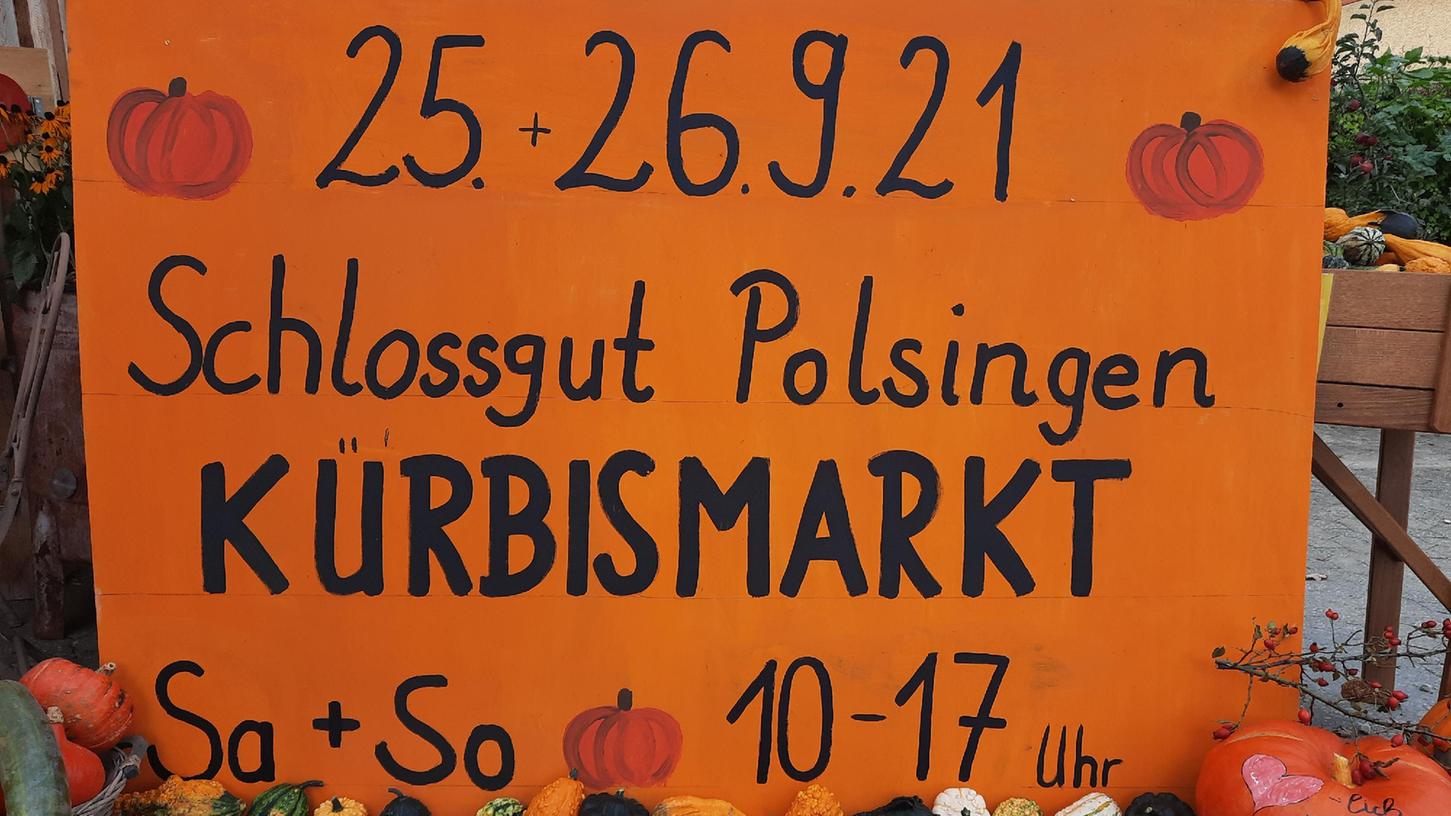 25. + 26.9.21
Schlossgut Polsingen
KÜRBISMARKT
Sa + So 10-17 Uhr